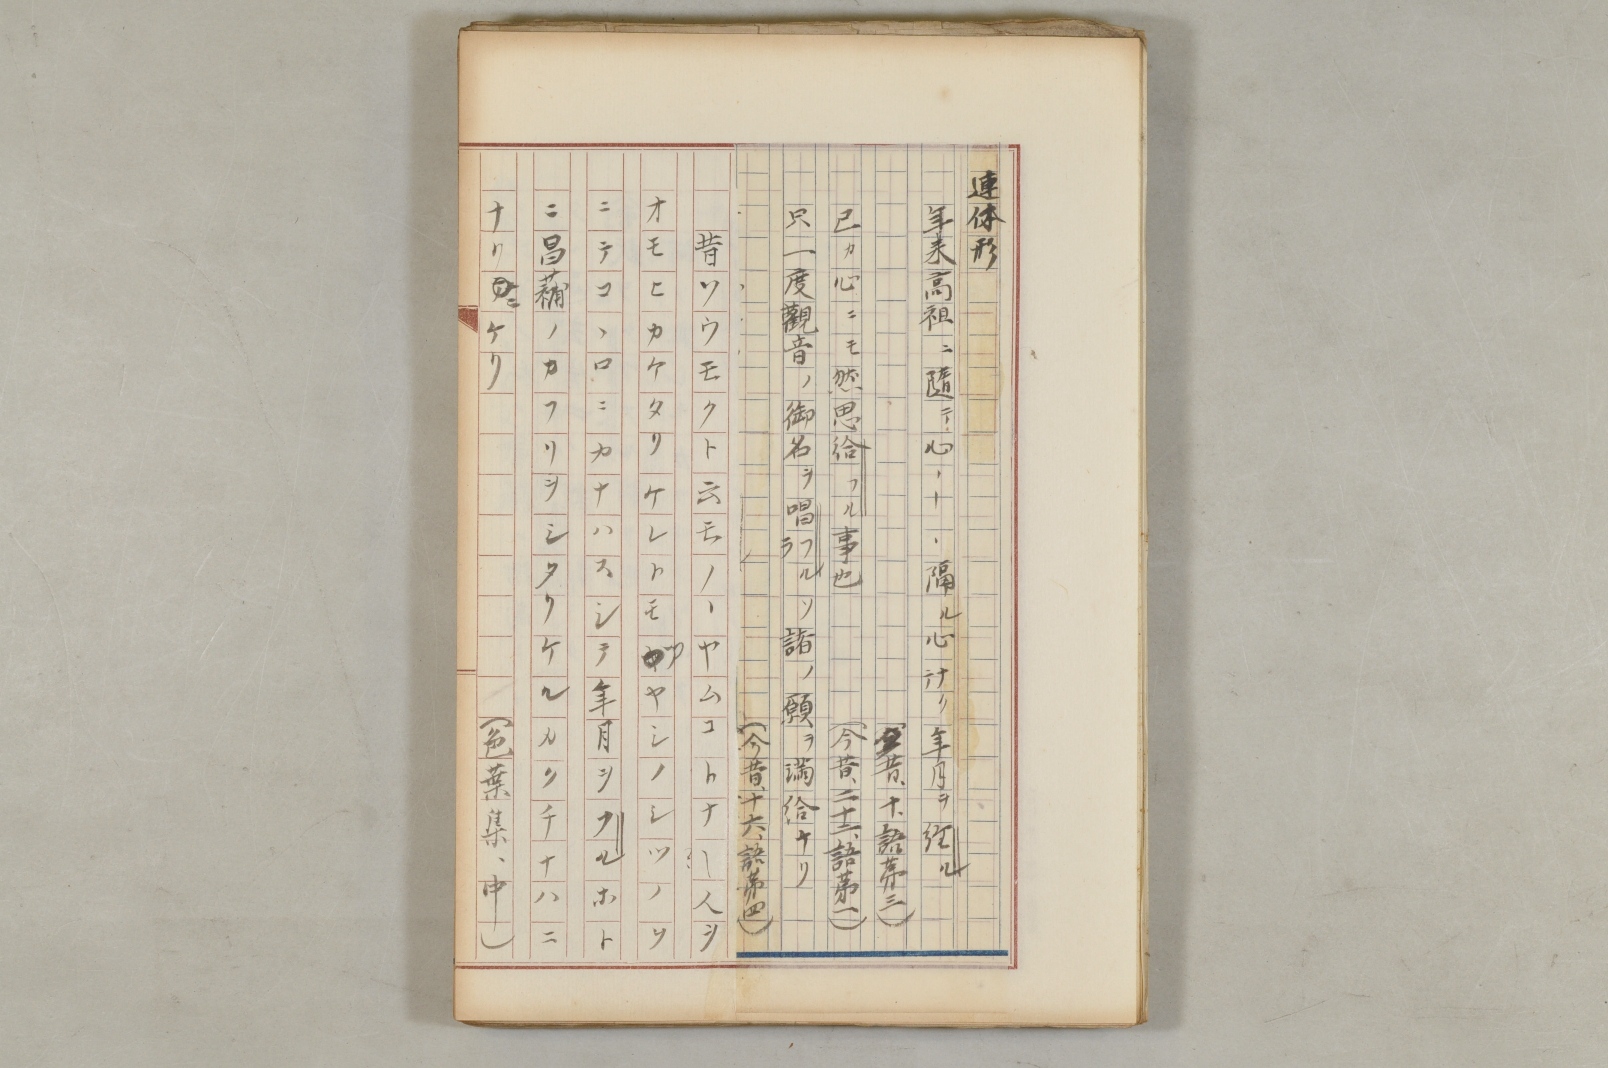 連体形
年来高祖ニ随テ心ノ十、隔ル心汁リ年月ヲ経ル
昔、十、語第三）
己カ心ニモ然思給フル事也
（今昔、二十二、語第一）
只一度觀音ノ御名ヲ唱フルソ諸ノ願ヲ満給ナリ
ラ
（今昔、十六、語第四）
昔ソウモクト云モノヽヤムコトナ／＼人ヲ
オモヒカケタリケレトモヤシノシツノヲ
ニテコヽロニカナハスシテ年月ヲフルホト
ニ昌蒱ノカフリヲシタリケルカクチナハニ
ナリニケリ
（色葉集、中）